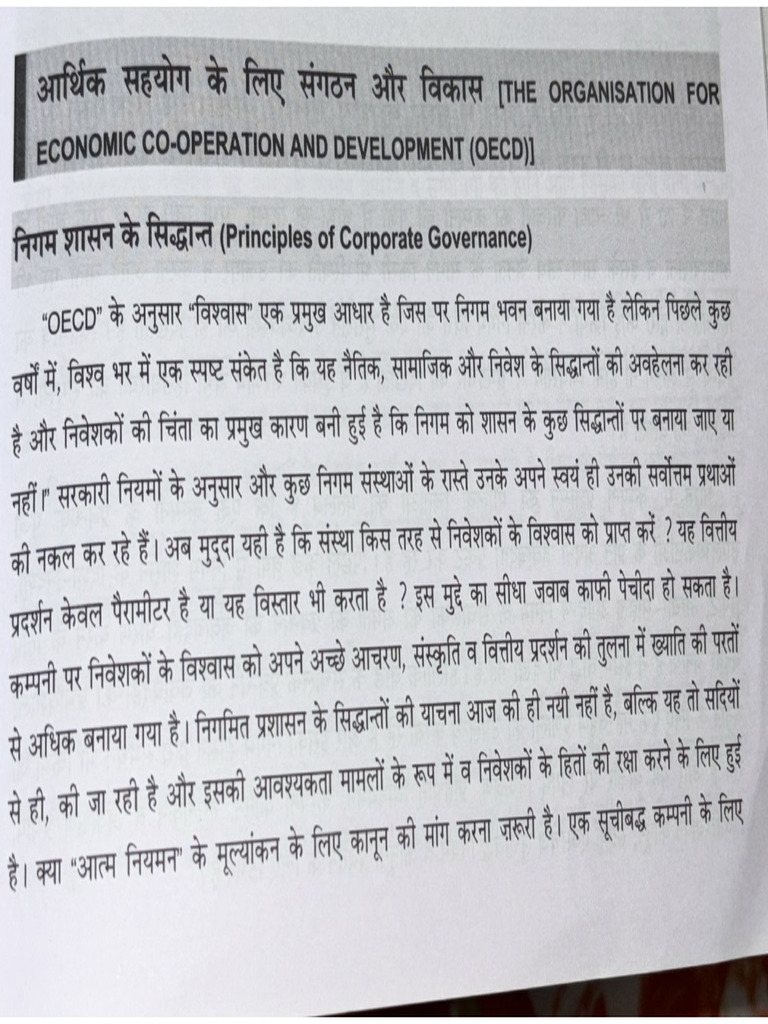 आर्थिक सहयोग के लिए संगठन और विकास [THE ORGANISATION FOR
ECONOMIC CO-OPERATION AND DEVELOPMENT (OECD)]
निगम शासन के सिद्धान्त (Principles of Corporate Governance)
“OECD” के अनुसार “विश्वास” एक प्रमुख आधार है जिस पर निगम भवन बनाया गया है लेकिन पिछले कुछ
वर्षों में, विश्व भर में एक स्पष्ट संकेत है कि यह नैतिक, सामाजिक और निवेश के सिद्धान्तों की अवहेलना कर रही
है और निवेशकों की चिंता का प्रमुख कारण बनी हुई है कि निगम को शासन के कुछ सिद्धान्तों पर बनाया जाए या
नहीं।” सरकारी नियमों के अनुसार और कुछ निगम संस्थाओं के रास्ते उनके अपने स्वयं ही उनकी सर्वोत्तम प्रथाओं
की नकल कर रहे हैं। अब मुद्दा यही है कि संस्था किस तरह से निवेशकों के विश्वास को प्राप्त करें ? यह वित्तीय
प्रदर्शन केवल पैरामीटर है या यह विस्तार भी करता है ? इस मुद्दे का सीधा जवाब काफी पेचीदा हो सकता है।
कम्पनी पर निवेशकों के विश्वास को अपने अच्छे आचरण, संस्कृति व वित्तीय प्रदर्शन की तुलना में ख्याति की परतों
से अधिक बनाया गया है। निगमित प्रशासन के सिद्धान्तों की याचना आज की ही नयी नहीं है, बल्कि यह तो सदियों
से ही, की जा रही है और इसकी आवश्यकता मामलों के रूप में व निवेशकों के हितों की रक्षा करने के लिए हुई
है। क्या “आत्म नियमन” के मूल्यांकन के लिए कानून की मांग करना ज़रूरी है। एक सूचीबद्ध कम्पनी के लिए